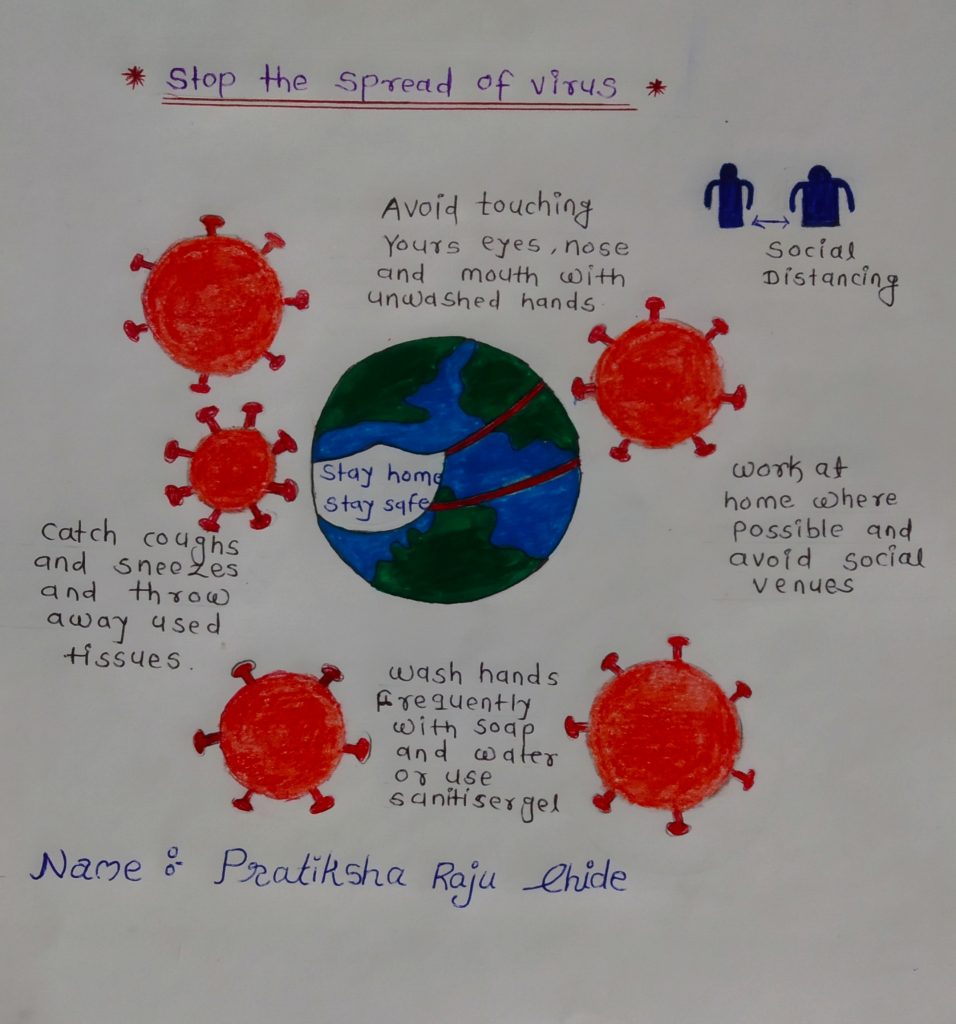 * Stop the spread of virus *
Avoid touching
Yours eyes, nose
and mouth with
unwashed hands.
Social
Distancing
Stay home
Stay safe
work at
home where
possible and
avoid social
venues
catch coughs
and sneezes
and throw
away used
tissues.
wash hands
Frequently
with soap
and water
or use
sanitiser gel
Name :- Pratiksha Raju Chide